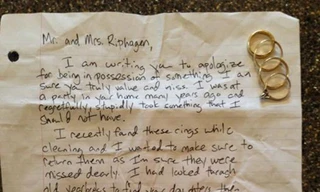 Mr. and Mrs. Riphagen,
I am writing you to apologize
for being in possession of something I am
sure you truly value and miss. I was at
a party in your home many years ago and
regretfully, stupidly took something that I
should not have.
I recently found these rings while
cleaning and I wanted to make sure to
return them as I'm sure they were
missed dearly. I had looked through
old yearbooks to find your daughters, then